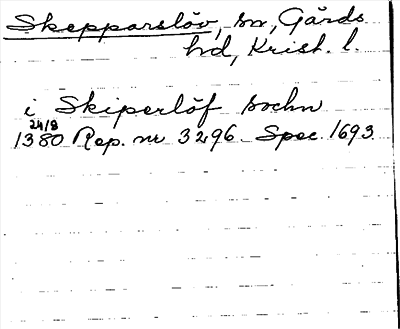 Skepparslöv, sn, Gärds
hd, Krist. l.
i Skiperlöf sochn
24/8
1380 Rep. nr 3296 Spec 1693